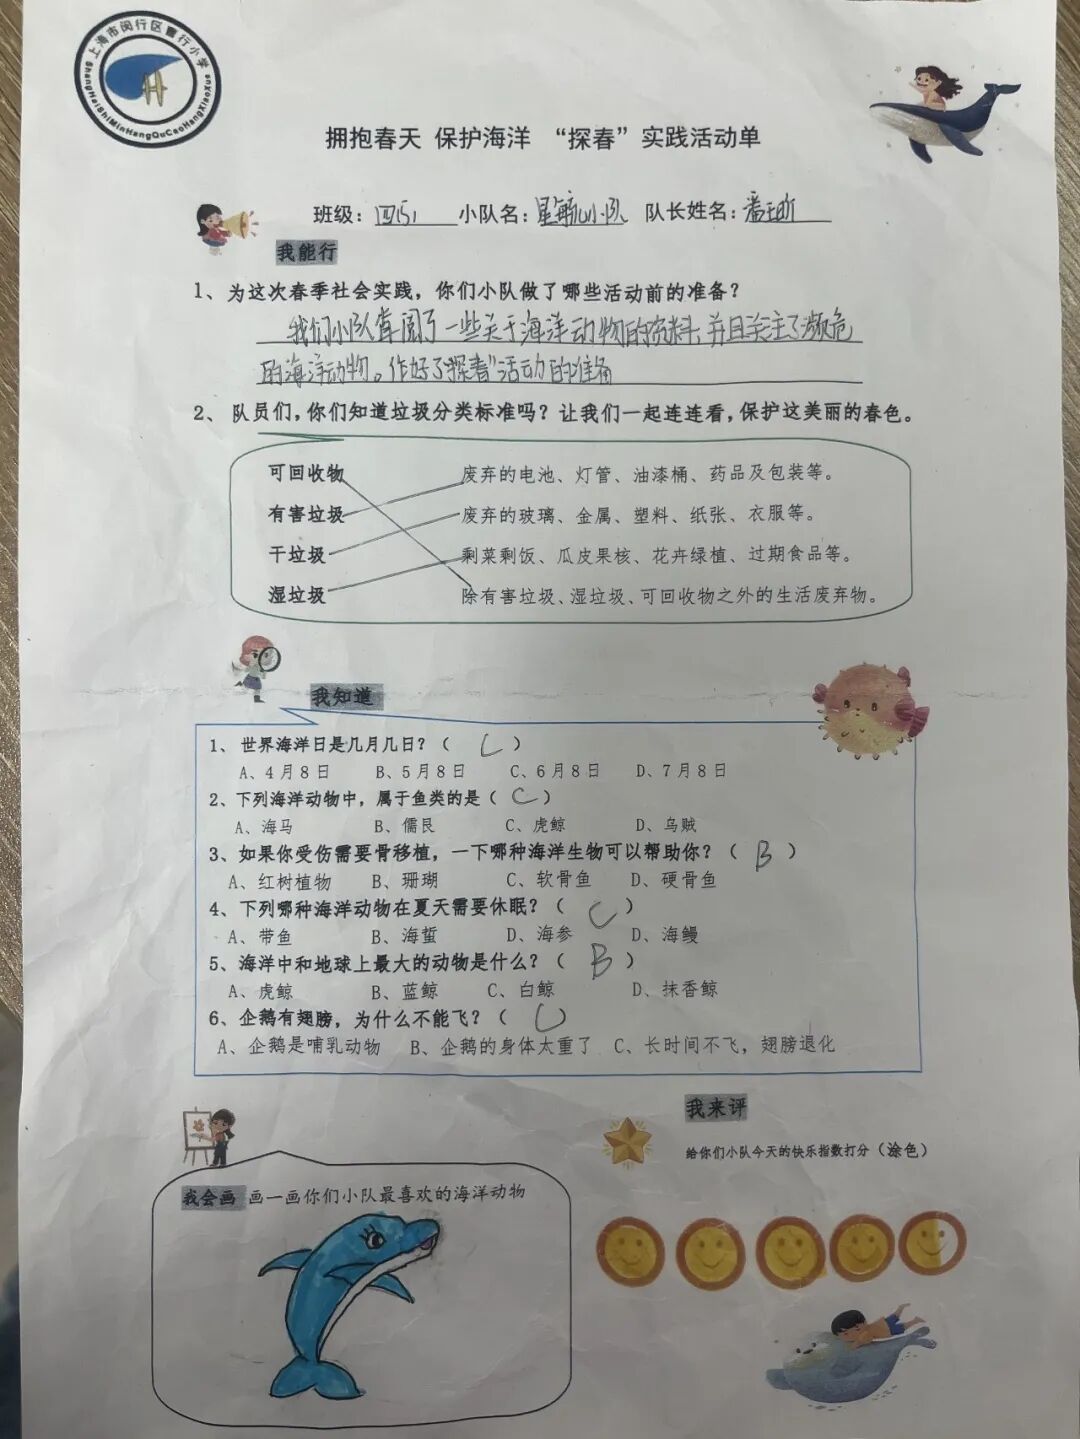 上海市闵行区曹行小学
ShangHaiShiMinHangQuCaoHangXiaoXue
拥抱春天 保护海洋 “探春”实践活动单
班级：四(5) 小队名：星航小队 队长姓名：潘玉昕
我能行
1、为这次春季社会实践，你们小队做了哪些活动前的准备？
我们小队查阅了一些关于海洋动物的资料、并且关注了濒危
的海洋动物。作好了“探春”活动的准备
2、队员们，你们知道垃圾分类标准吗？让我们一起连连看，保护这美丽的春色。
可回收物 废弃的电池、灯管、油漆桶、药品及包装等。
有害垃圾 废弃的玻璃、金属、塑料、纸张、衣服等。
干垃圾 剩菜剩饭、瓜皮果核、花卉绿植、过期食品等。
湿垃圾 除有害垃圾、湿垃圾、可回收物之外的生活废弃物。
我知道
1、世界海洋日是几月几日？（ C ）
A、4月8日 B、5月8日 C、6月8日 D、7月8日
2、下列海洋动物中，属于鱼类的是（ C ）
A、海马 B、儒艮 C、虎鲸 D、乌贼
3、如果你受伤需要骨移植，一下哪种海洋生物可以帮助你？（ B ）
A、红树植物 B、珊瑚 C、软骨鱼 D、硬骨鱼
4、下列哪种海洋动物在夏天需要休眠？（ C ）
A、带鱼 B、海蜇 D、海参 D、海鳗
5、海洋中和地球上最大的动物是什么？（ B ）
A、虎鲸 B、蓝鲸 C、白鲸 D、抹香鲸
6、企鹅有翅膀，为什么不能飞？（ C ）
A、企鹅是哺乳动物 B、企鹅的身体太重了 C、长时间不飞，翅膀退化
我来评
给你们小队今天的快乐指数打分（涂色）
我会画 画一画你们小队最喜欢的海洋动物